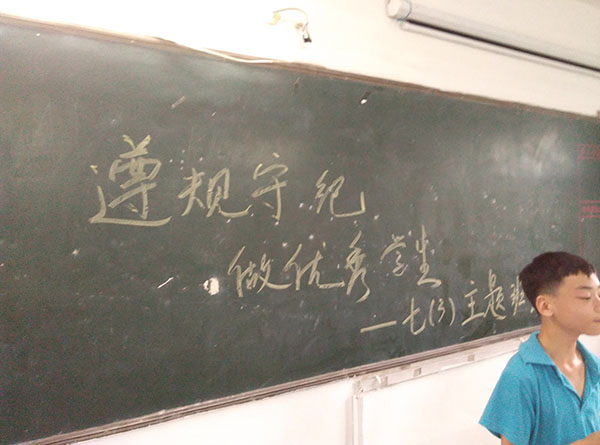 遵规守纪
做优秀学生
—七(3)主题班